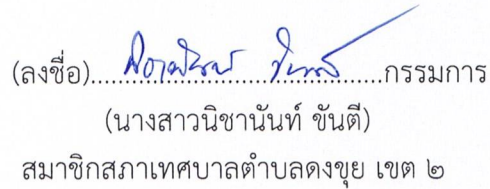 (ลงชื่อ)..............................กรรมการ
(นางสาวนิชานันท์ ขันตี)
สมาชิกสภาเทศบาลตำบลดงขุย เขต ๒